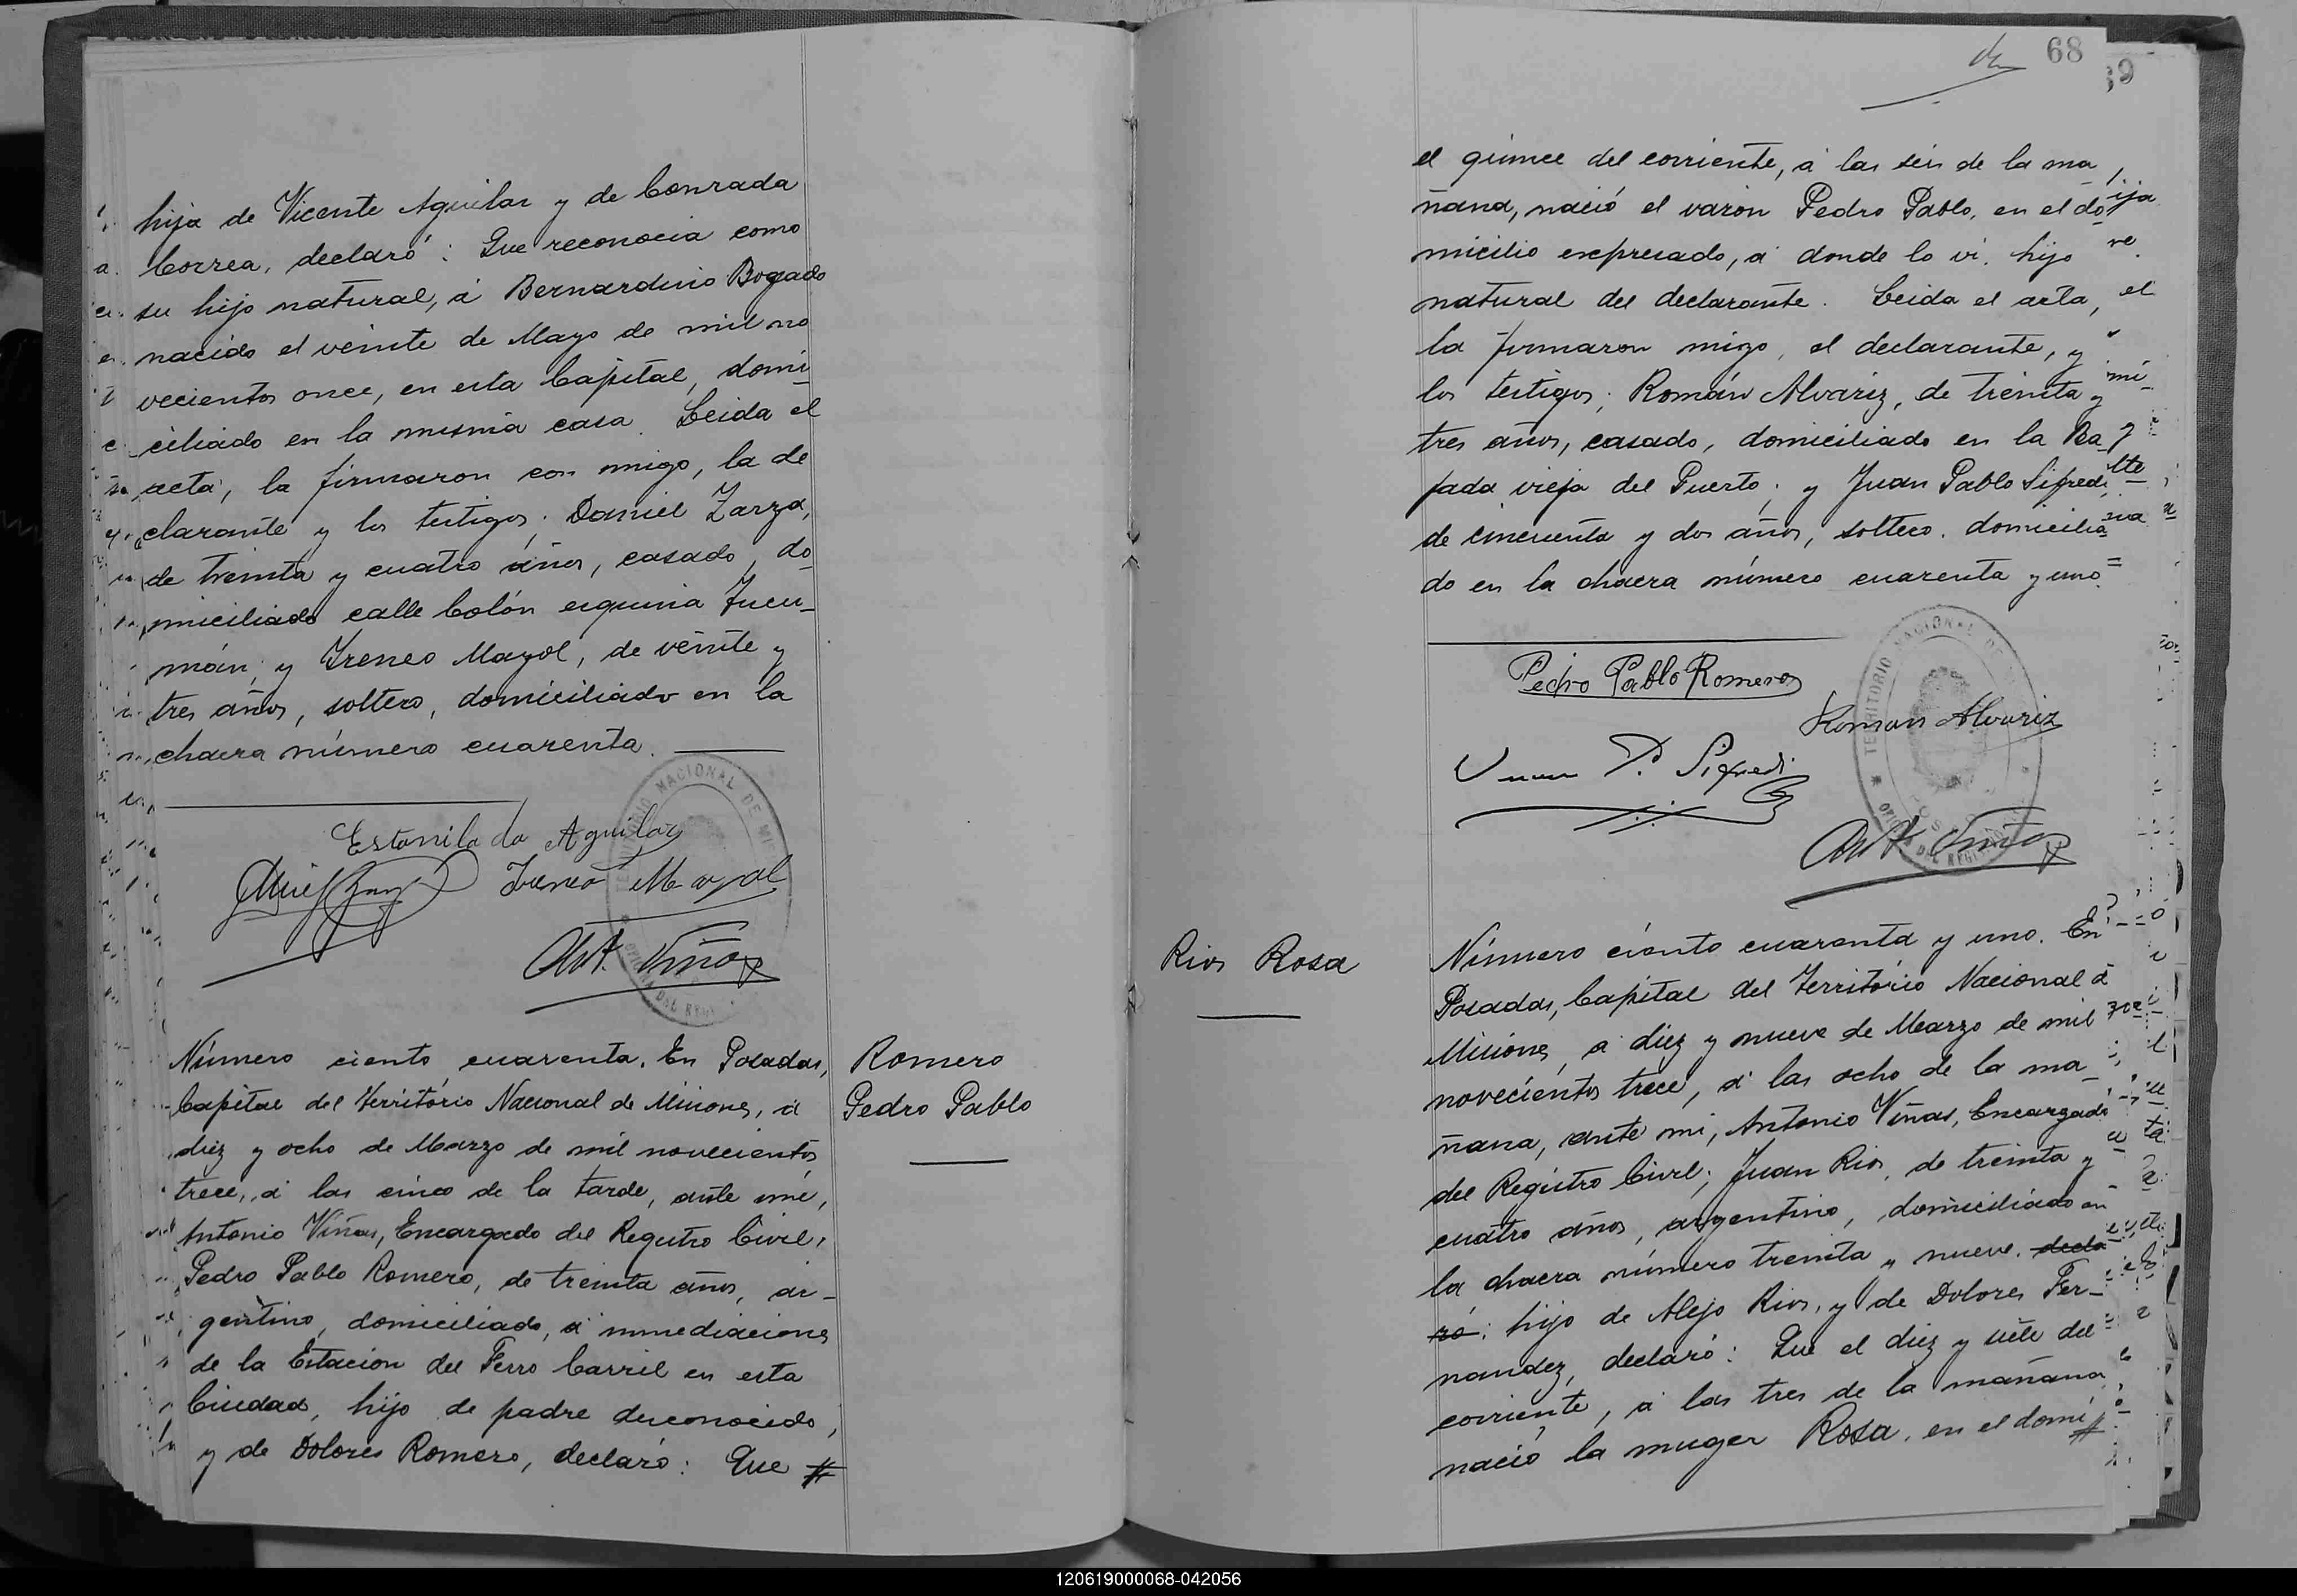 hija de Vicente Aguilar y de Conrada
Correa, declaró: Que reconocia como
su hijo natural, á Bernardino Bogado
nacido el veinte de Mayo de mil no
vecientos once, en esta Capital, domi-
ciliado en la misma casa. Leida el
acta, la firmaron con migo, la de
clarante y los testigos; Daniel Zarza,
de treinta y cuatro años, casado, do-
miciliado calle Colón esquina Tucu-
mán; y Ireneo Mayol, de veinte y
tres años, soltero, domiciliado en la
chacra número cuarenta.
Estanilada Aguilar
Ireneo Mayol
Ant. Viñas
TERRITORIO NACIONAL DE MI
OFICINA DEL REGI
Número ciento cuarenta. En Posadas,
Capital del Territorio Nacional de Misiones, á
diez y ocho de Marzo de mil novecientos
trece, á las cinco de la tarde, ante mi,
Antonio Viñas, Encargado del Registro Civil,
Pedro Pablo Romero, de treinta años, ar-
gentino, domiciliado, á inmediaciones
de la Estacion del Ferro Carril en esta
Ciudad, hijo de padre desconocido,
y de Dolores Romero, declaró: Que #
Romero
Pedro Pablo
68
69
el quince del corriente, á las seis de la ma
ñana, nació el varon Pedro Pablo, en el do-
micilio expresado, á donde lo vi, hijo
natural del declarante. Leida el acta,
la firmaron migo, el declarante, y
los testigos; Román Alvariz, de treinta y
tres años, casado, domiciliado en la Ba-
jada vieja del Puerto; y Juan Pablo Sifredi,
de cincuenta y dos años, soltero, domicilia-
do en la chacra número cuarenta y uno.
Pedro Pablo Romero
Roman Alvariz
Juan P. Sifredi
Ant. Viñas
TERRITORIO NACIONAL DE
OFICINA DEL REGISTRO
Rios Rosa
Número ciento cuarenta y uno. En
Posadas, Capital del Territorio Nacional d
Misiones, á diez y nueve de Marzo de mil
novecientos trece, á las ocho de la ma-
ñana, ante mi, Antonio Viñas, Encargado
del Registro Civil; Juan Rios, de treinta y
cuatro años, argentino, domiciliado en
la chacra número treinta y nueve. decla
ró: hijo de Alejo Rios, y de Dolores Fer-
nandez, declaró: Que el diez y siete del
corriente, á las tres de la mañana
nació la muger Rosa, en el domi #